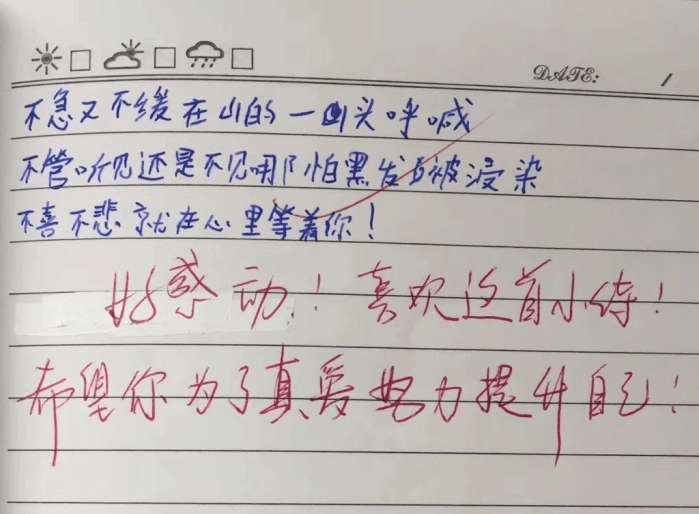 DATE:
不急又不缓在山的一头呼喊
不管听见还是不见哪怕黑发被浸染
不喜不悲就在心里等着你！
好感动！喜欢这首小诗！
希望你为了真爱努力提升自己！